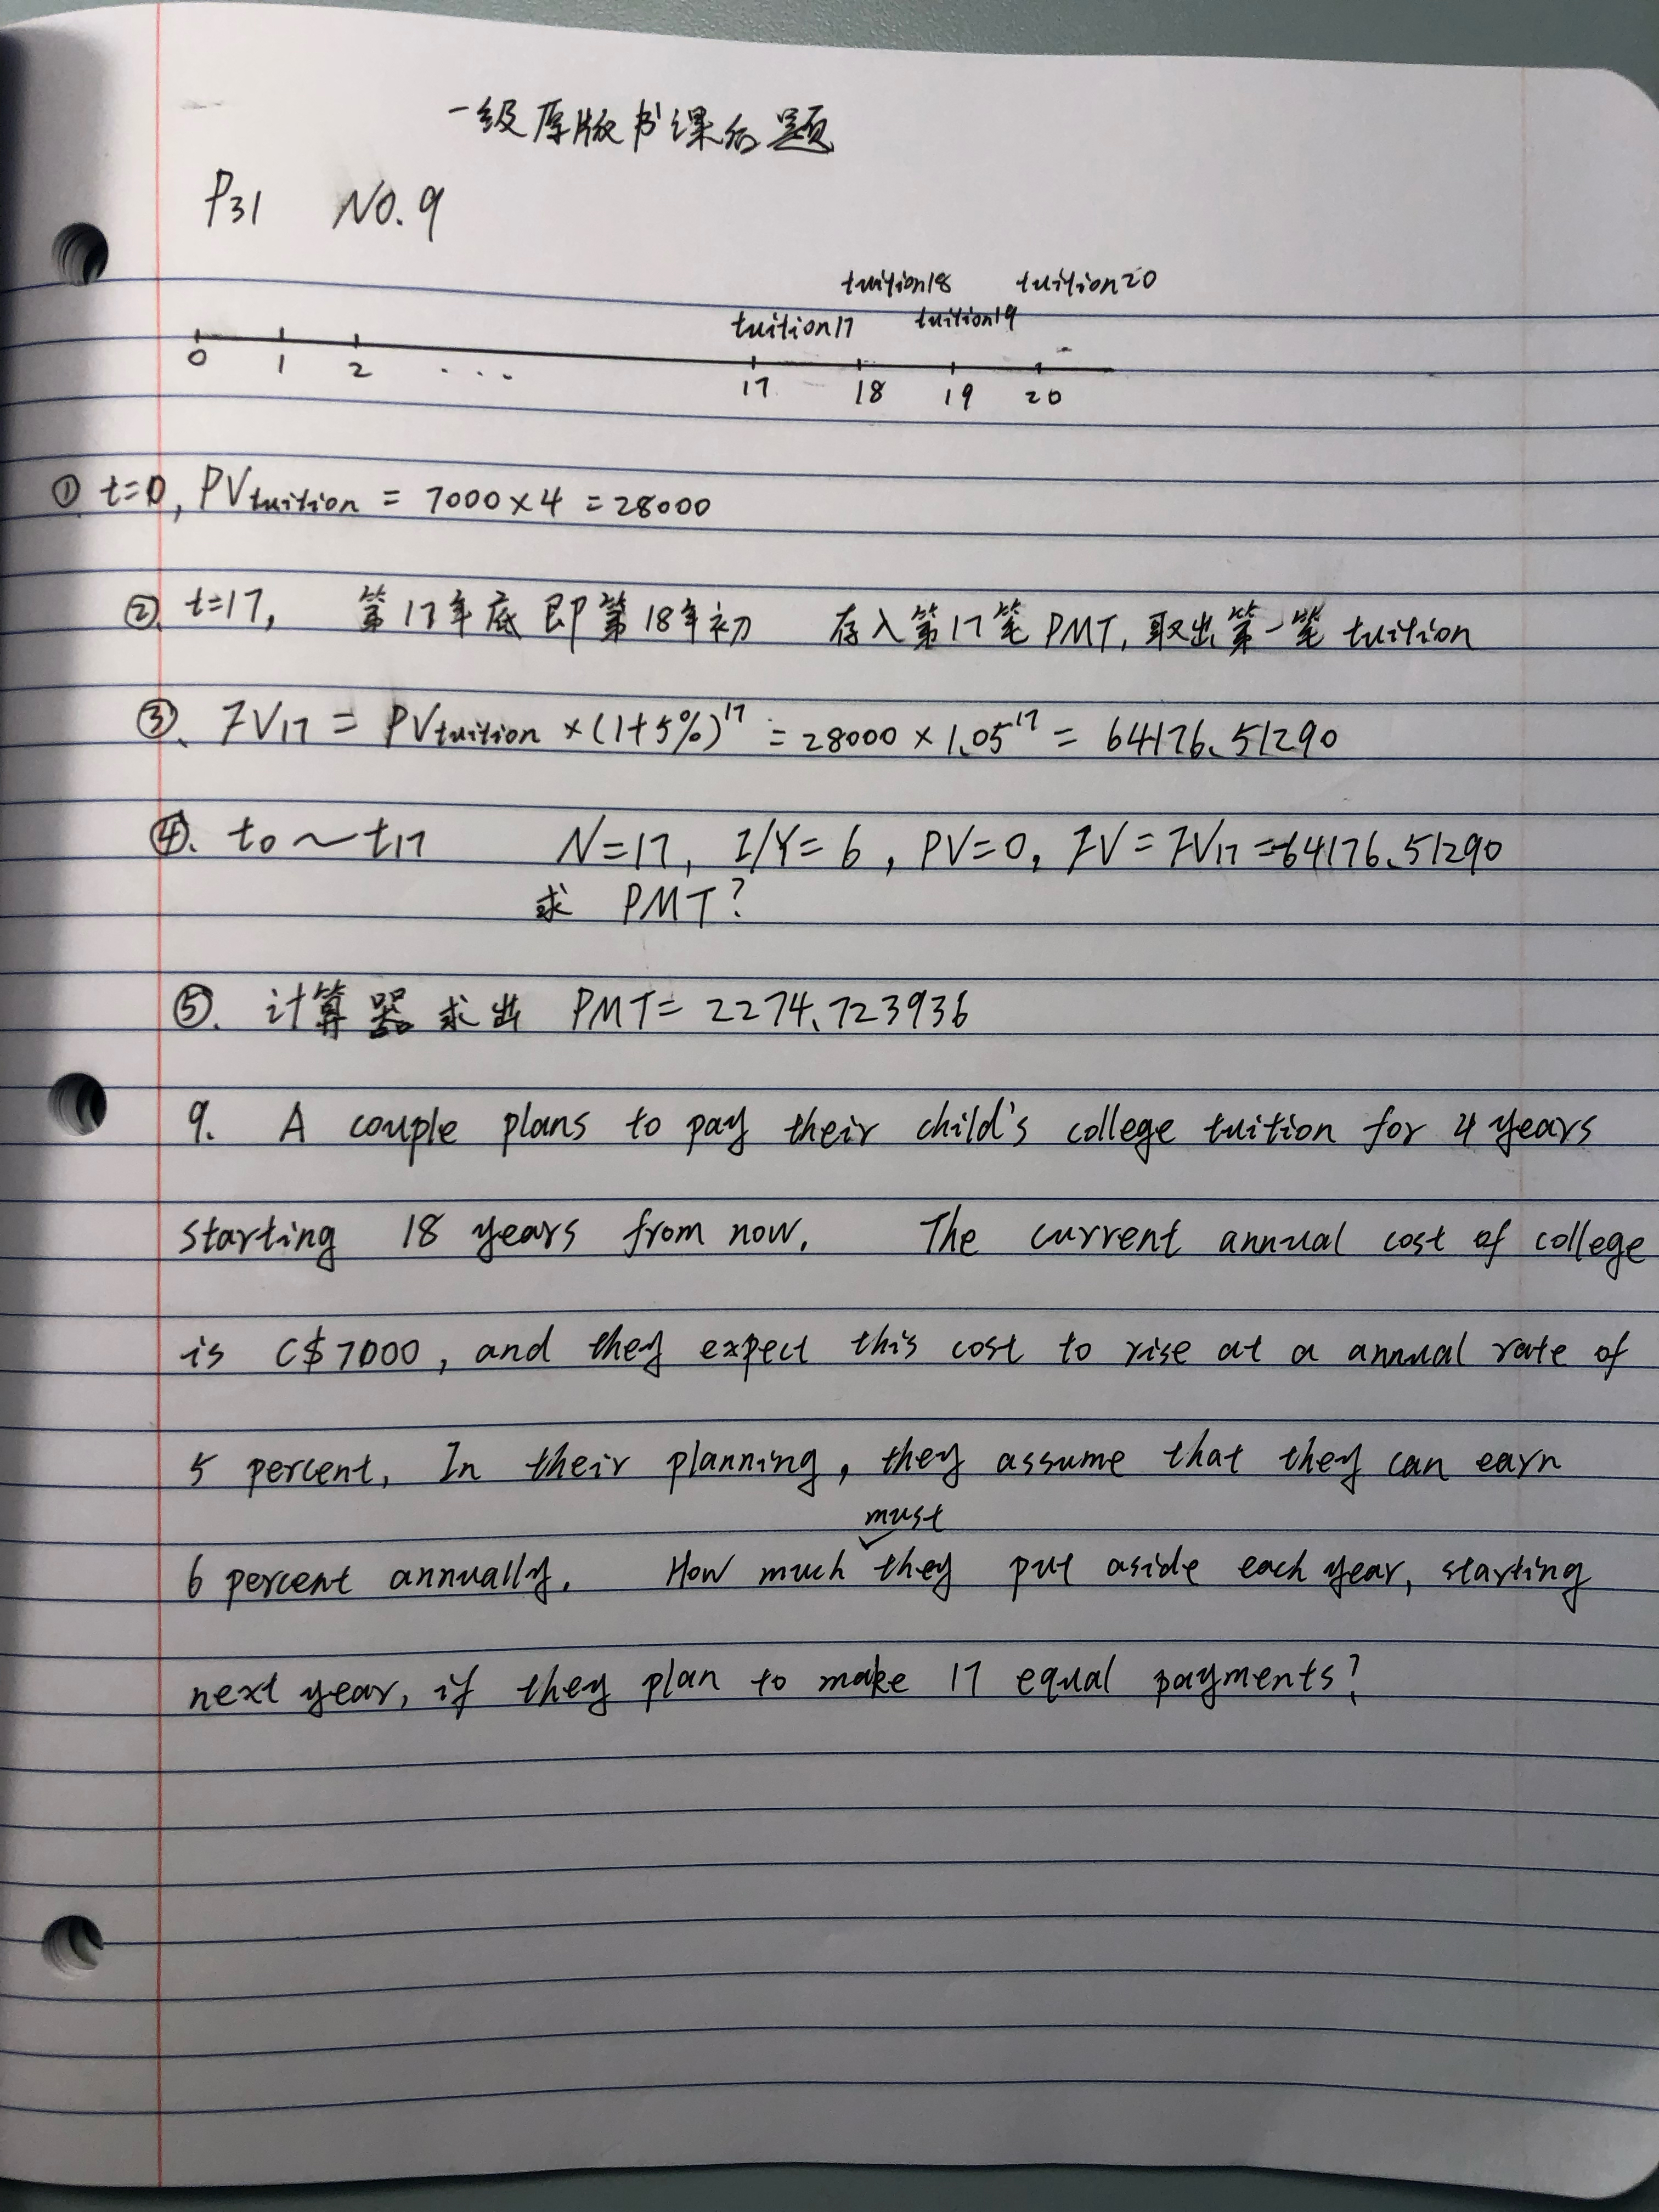 一级原版书课后题
P31 NO.9
tuition18 tuition20
tuition17 tuition19
0 1 2 ... 17 18 19 20
① t=0, PVtuition = 7000×4 =28000
②. t=17, 第17年底即第18年初 存入第17笔PMT,取出第一笔tuition
③. FV17 = PVtuition ×(1+5%)^17 = 28000 × 1.05^17 = 64176.51290
④. t0~t17 N=17, I/Y=6, PV=0, FV=FV17=-64176.51290
求 PMT?
⑤. 计算器求出 PMT= 2274.723936
9. A couple plans to pay their child's college tuition for 4 years
starting 18 years from now. The current annual cost of college
is C$7000, and they expect this cost to rise at a annual rate of
5 percent. In their planning, they assume that they can earn
must
6 percent annually. How much they put aside each year, starting
next year, if they plan to make 17 equal payments?